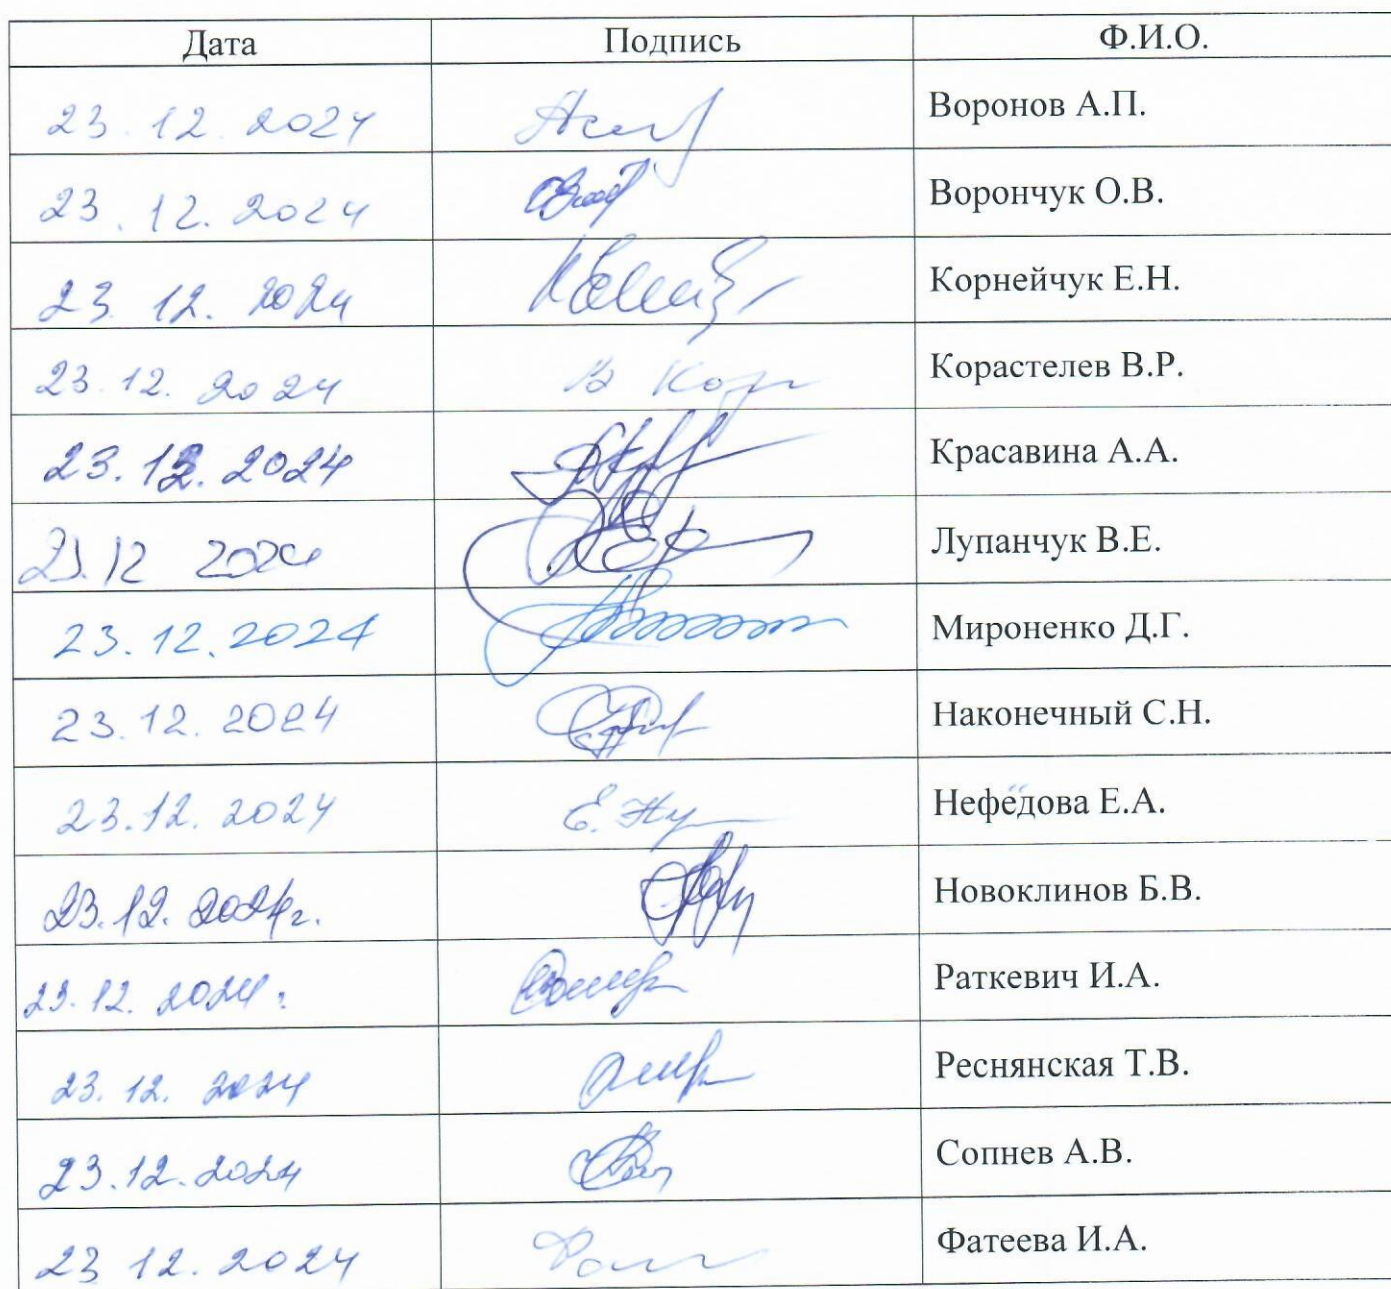 Дата Подпись Ф.И.О.
23.12.2024 Воронов А.П.
23.12.2024 Ворончук О.В.
23.12.2024 Корнейчук Е.Н.
23.12.2024 В Кор Корастелев В.Р.
23.12.2024 Красавина А.А.
23.12 2024 Лупанчук В.Е.
23.12.2024 Мироненко Д.Г.
23.12.2024 Наконечный С.Н.
23.12.2024 Нефёдова Е.А.
23.12.2024г. Новоклинов Б.В.
23.12.2024г. Раткевич И.А.
23.12.2024 Реснянская Т.В.
23.12.2024 Сопнев А.В.
23.12.2024 Фатеева И.А.